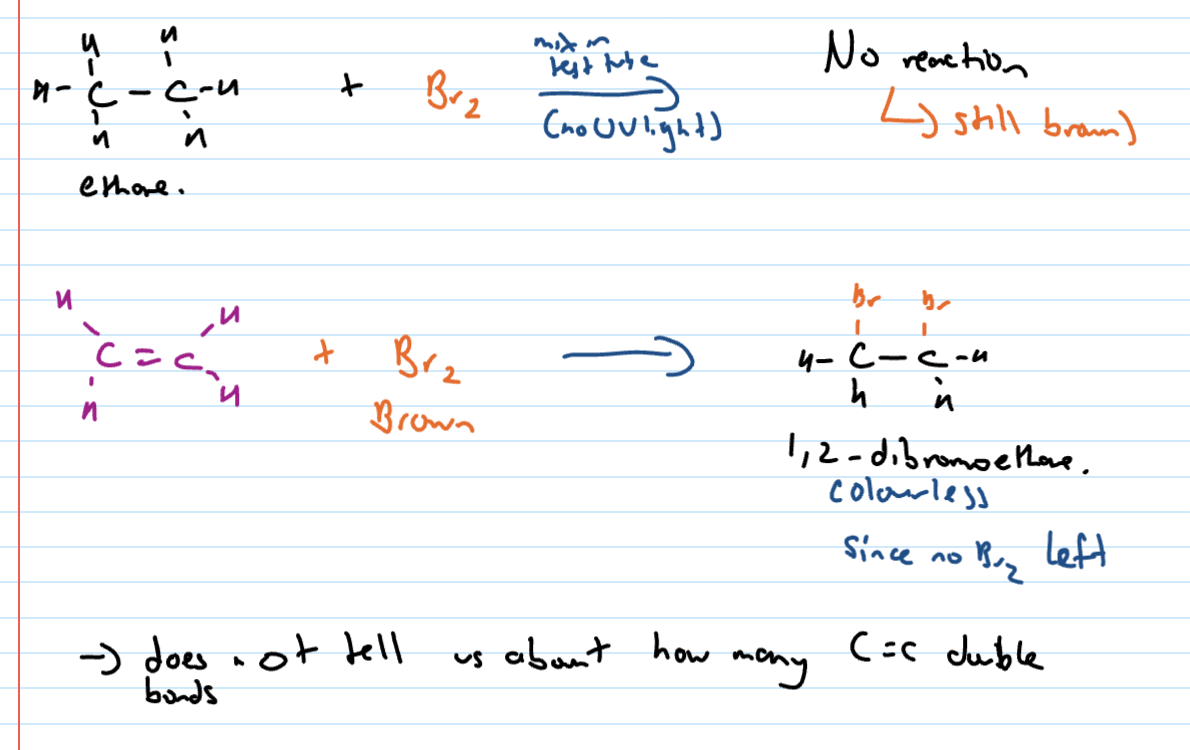 H H
H - C - C - H + Br2 mix in test tube (no UV light) No reaction
H H ↳ still brown)
ethane.
H H Br Br
C = C + Br2 → H - C - C - H
H H Brown H H
1,2-dibromoethane.
colourless
since no Br2 left
→ does not tell us about how many C=C double
bonds